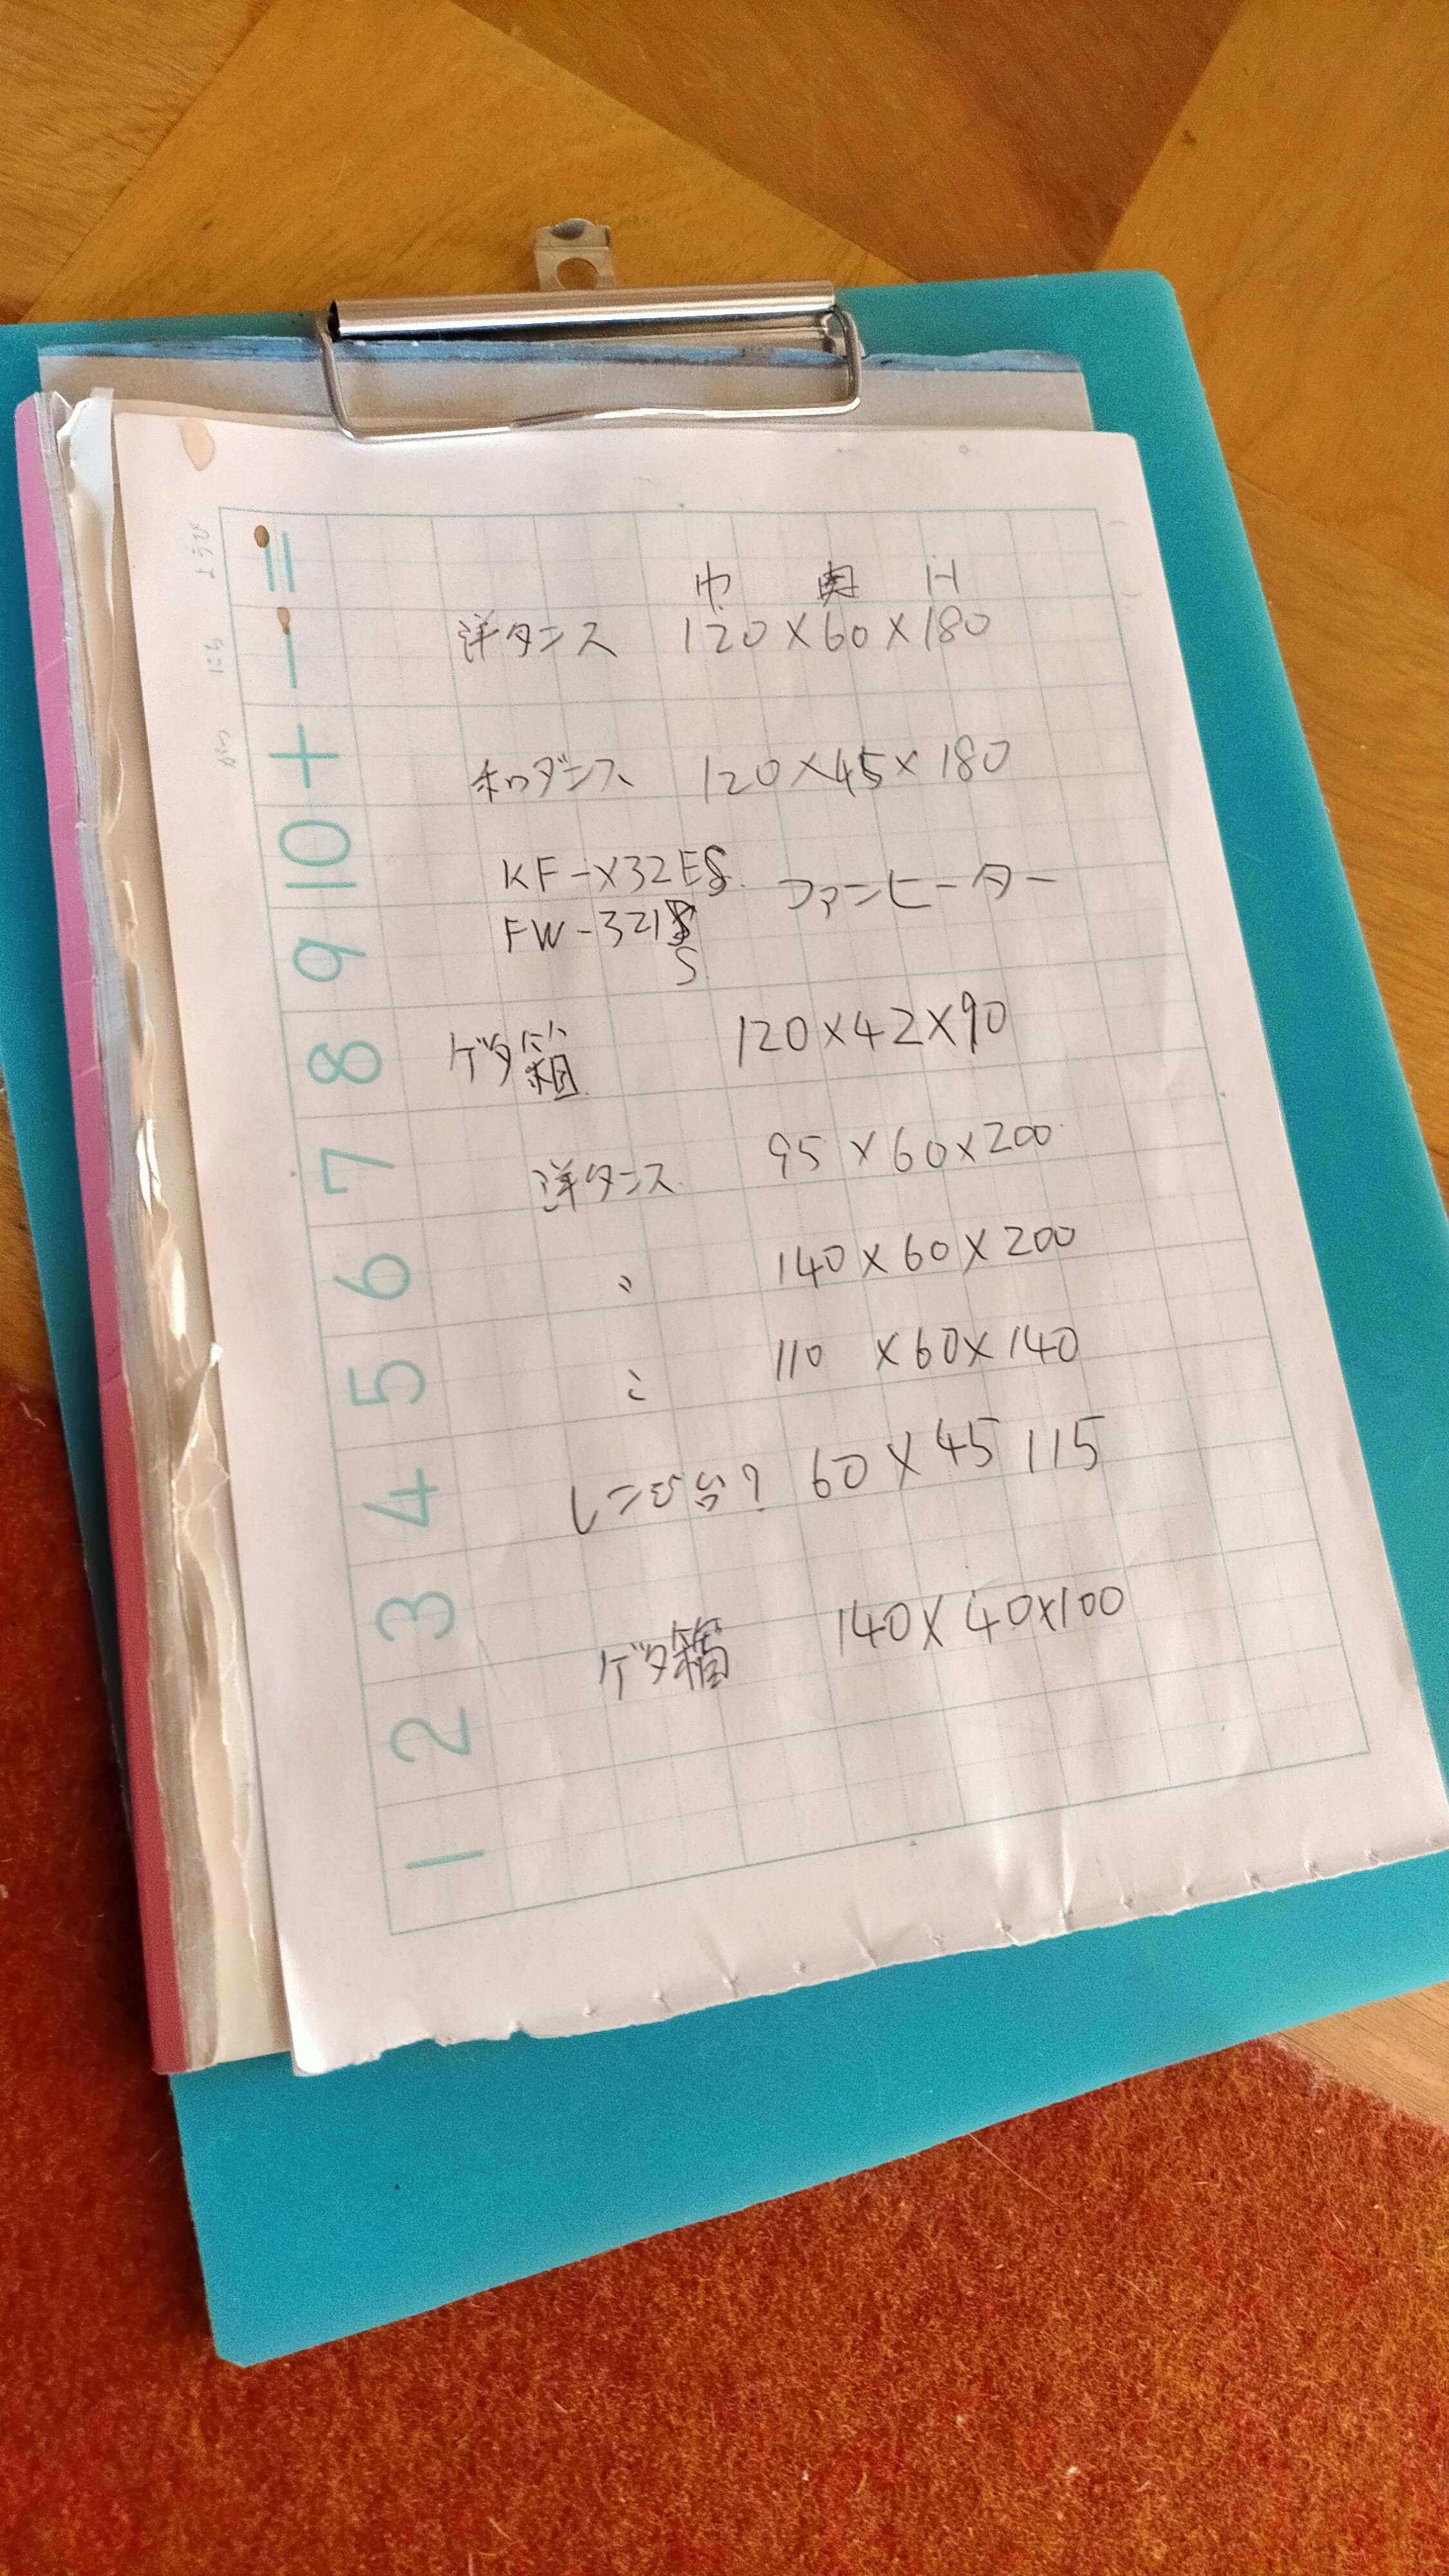 巾 奥 H
洋タンス 120×60×180
和ダンス 120×45×180
KF-X32ES. ファンヒーター
FW-321S
S
ゲタ箱 120×42×90
洋タンス 95×60×200
〃 140×60×200
〃 110×60×140
レンジ台? 60×45 115
ゲタ箱 140×40×100
= − + 10 9 8 7 6 5 4 3 2 1
がつ にち ようび